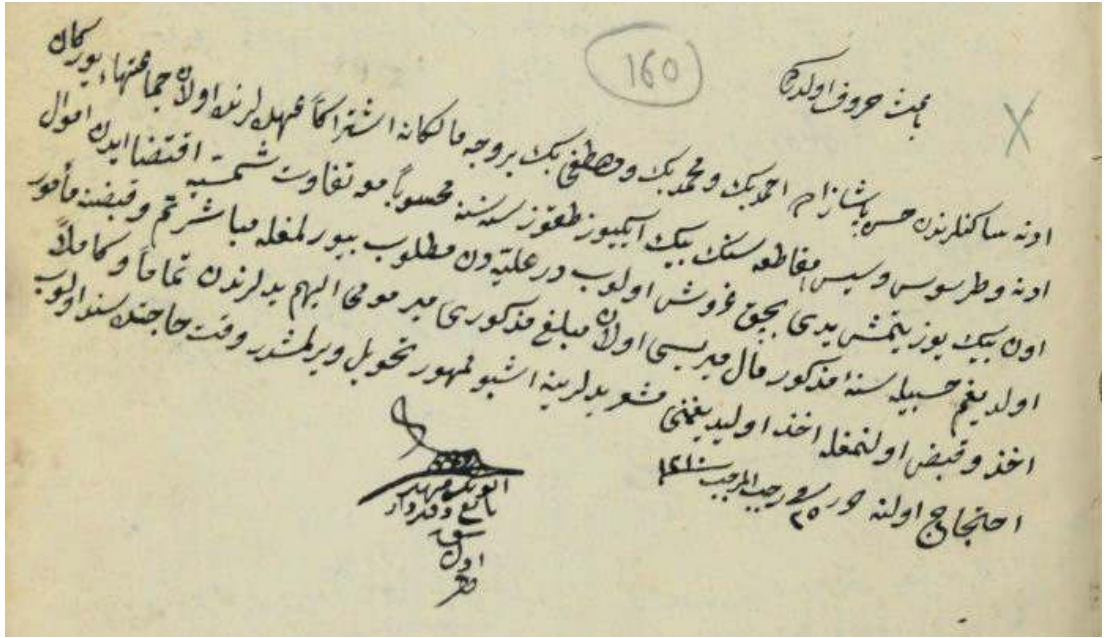 160
باعث حروف اولدركه
ادنه ساكنلرندن حسن پاشازاده احمد بك ومحمد بك ومصطفى بك بر وجه مالكانه اشتراكاً عهده لرنده اولان جماعتهاء يوركان
ادنه وطرسوس وسيس مقاطعه سنك بيك ايكيوز طقوز سنه سنه محسوباً مع تفاوت شمسيه اقتضا ايدن اموال
اون بيك يوز يتمش يدى بچق غروش اولوب در عليه دن مطلوب بيورلمغله مباشرتم وقبضنه مأمور
اولديغم حسبيله سنه مذكور مال ميريسى اولان مبلغ مذكورى مير مومى اليهم يدلرندن تماماً وكاملاً
اخذ وقبض اولنمغله اخذ اولنديغنى مشعر يدلرينه اشبو ممهور تحويل ويرلمشدر وقت حاجتده سند اولوب
احتجاج اولنه حرر فى ٢٥ رجب المرجب سنه ١٢١٠